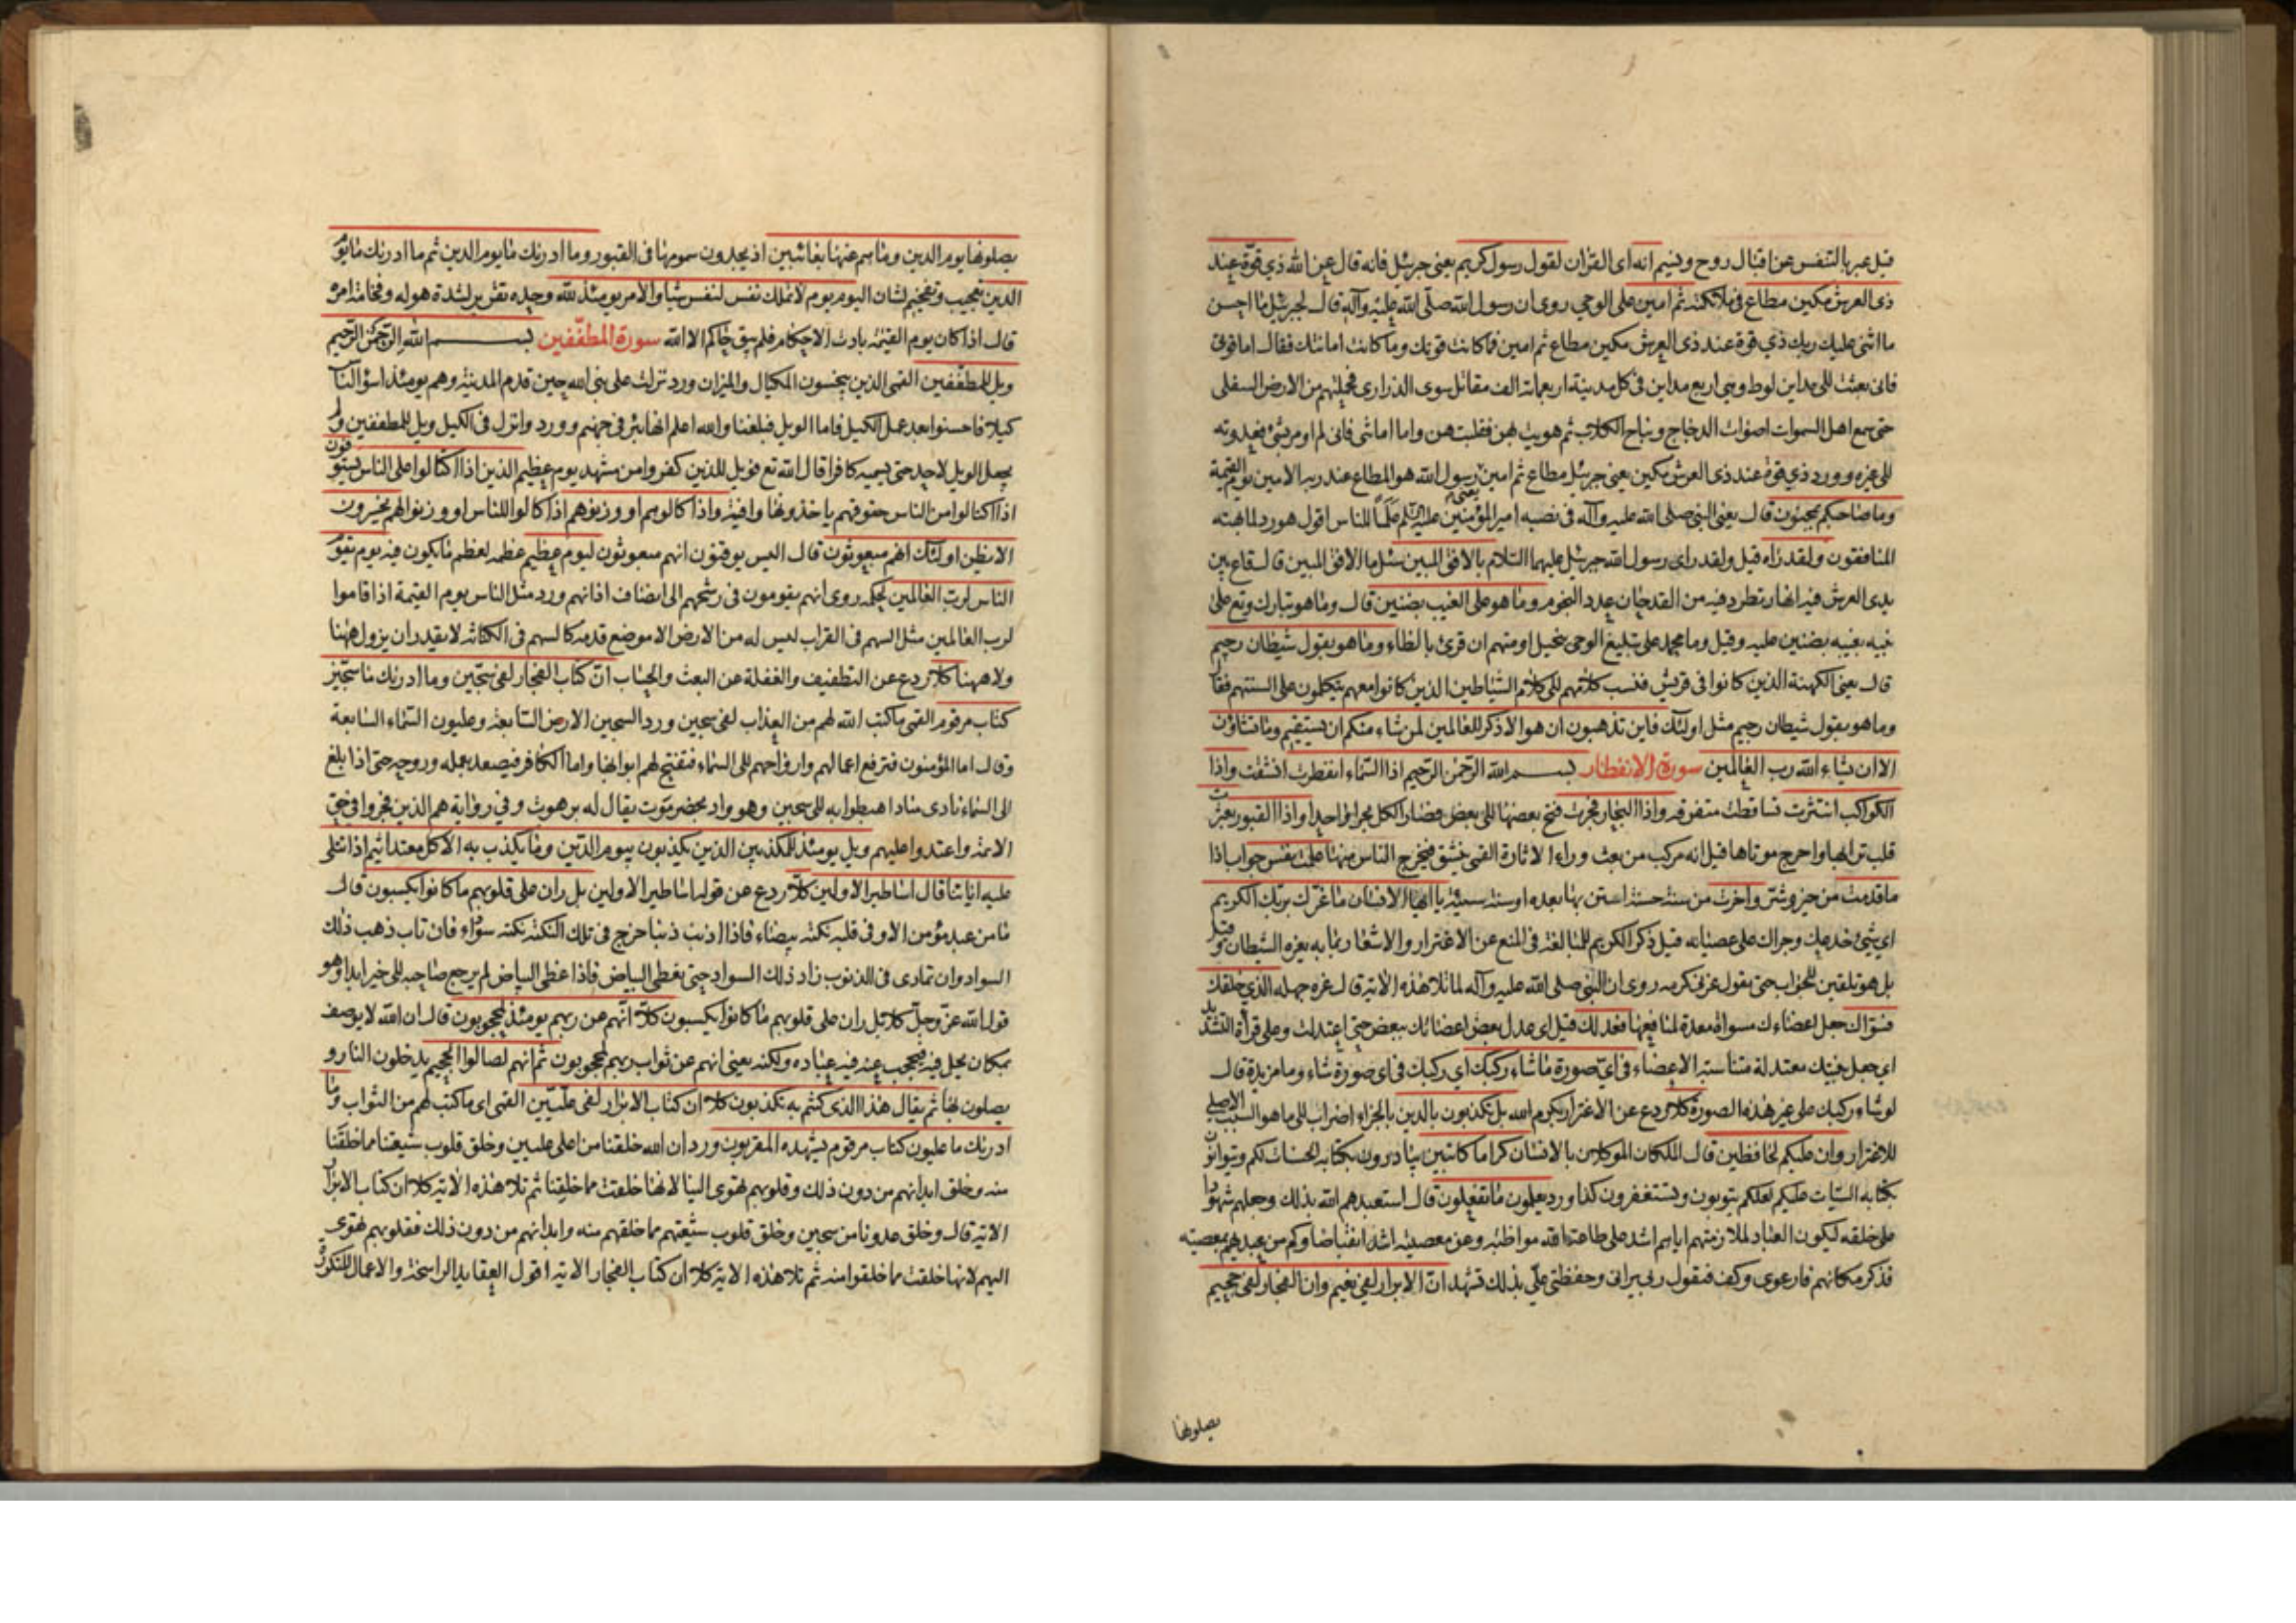 قيل عبر بالتنفس عن اقبال روح ونسيم انه اى القران لقول رسول كريم يعنى جبرئيل فانه قال عن الله ذي قوة عند
ذى العرش مكين مطاع فى ملائكته ثم امين على الوحى روى ان رسول الله صلى الله عليه وآله قال لجبرئيل ما احسن
ما اثنى عليك ربك ذي قوة عند ذى العرش مكين مطاع ثم امين فما كانت قوتك وما كانت امانتك فقال اما قوتى
فانى بعثت الى مداين لوط وهى اربع مداين فى كل مدينة اربعمائة الف مقاتل سوى الذرارى فحملتهم من الارض السفلى
حتى سمع اهل السموات اصوات الدجاج ونباح الكلاب ثم هويت بهن فقلبتهن واما امانتى فانى لم اومر بشئ فعدوته
الى غيره وورد ذي قوة عند ذى العرش مكين يعنى جبرئيل مطاع ثم امين يعنى رسول الله هو المطاع عند ربه الامين يوم القيمة
وما صاحبكم بمجنون قال يعنى النبى صلى الله عليه وآله فى نصبه امير المؤمنين علما للناس اقول هو رد لما بهته
المنافقون ولقد راه قيل ولقد راى رسول الله جبرئيل عليهما السلام بالافق المبين سئل ما الافق المبين قال قاع بين
يدى العرش فيه انهار تطرد فيه من القدحان عدد النجوم وما هو على الغيب بضنين قال وما هو تبارك وتع على
نبيه بغيبه بضنين عليه وقيل وما محمد على تبليغ الوحى ببخيل او متهم ان قرئ بالظاء وما هو بقول شيطان رجيم
قال يعنى الكهنة الذين كانوا فى قريش فنسب كلامهم الى كلام الشياطين الذين كانوا معهم يتكلمون على السنتهم فقال
وما هو بقول شيطان رجيم مثل اولئك فاين تذهبون ان هو الا ذكر للعالمين لمن شاء منكم ان يستقيم وما تشاؤن
الا ان يشاء الله رب العالمين سورة الانفطار بسم الله الرحمن الرحيم اذا السماء انفطرت انشقت واذا
الكواكب انتثرت تساقطت متفرقة واذا البحار فجرت فتح بعضها الى بعض فصار الكل بحرا واحدا واذا القبور بعثرت
قلب ترابها واخرج موتاها قيل انه مركب من بعث وراء الاثارة القمى تنشق فيخرج الناس منها علمت نفس جواب اذا
ما قدمت من خير وشر واخرت من سنة حسنة استن بها بعده او سنة سيئة يا ايها الانسان ما غرك بربك الكريم
اى شئ خدعك وجراك على عصيانه قيل ذكر الكريم للمبالغة فى المنع عن الاغترار والاشعار بما به يغره الشيطان وقيل
بل هو تلقين للجواب حتى يقول غرنى كرمه روى ان النبى صلى الله عليه وآله لما تلا هذه الاية قال غره جهله الذي خلقك
فسواك جعل اعضاءك مسواة معدة لمنافعها فعدلك قيل اى عدل بعض اعضائك ببعض حتى اعتدلت وعلى قراءة التشديد
اى جعل بنيتك معتدلة متناسبة الاعضاء فى اى صورة ما شاء ركبك اى ركبك فى اى صورة شاء وما مزيدة قال
لو شاء ركبك على غير هذه الصورة كلا ردع عن الاغترار بكرم الله بل تكذبون بالدين بالجزاء اضراب الى ما هو السبب الاصلى
للاغترار وان عليكم لحافظين قال الملكان الموكلان بالانسان كراما كاتبين يبادرون بكتابة الحسنات لكم ويتوانون
بكتابة السيات عليكم لعلكم تتوبون وتستغفرون كذا ورد يعلمون ما تفعلون قال استعبدهم الله بذلك وجعلهم شهودا
على خلقه ليكون العباد لملازمتهم اياهم اشد على طاعة الله مواظبة وعن معصيته اشد انقباضا وكم من عبد يهم بمعصيته
فذكر مكانهم فارعوى وكف فيقول ربى يرانى وحفظتى على بذلك تشهد ان الابرار لفى نعيم وان الفجار لفى جحيم
يصلونها
يصلونها يوم الدين وما هم عنها بغائبين اذ يجدون سمومها فى القبور وما ادريك ما يوم الدين ثم ما ادريك ما يوم
الدين تعجيب وتفخيم لشان اليوم يوم لا تملك نفس لنفس شيئا والامر يومئذ لله وحده تقرير لشدة هوله وفخامة امره
قال اذا كان يوم القيمة بادت الاحكام فلم يبق حاكم الا الله سورة المطففين بسم الله الرحمن الرحيم
ويل للمطففين القمى الذين يبخسون المكيال والميزان ورد نزلت على نبى الله حين قدم المدينة وهم يومئذ اسوأ الناس
كيلا فاحسنوا بعد عمل الكيل فاما الويل فبلغنا والله اعلم انها بئر فى جهنم وورد وانزل فى الكيل ويل للمطففين ولم
يجعل الويل لاحد حتى يسميه كافرا قال الله تع فويل للذين كفروا من مشهد يوم عظيم الذين اذا اكتالوا على الناس يستوفون
اذا اكتالوا من الناس حقوقهم ياخذونها وافية واذا كالوهم او وزنوهم اذا كالوا للناس او وزنوا لهم يخسرون
الا يظن اولئك انهم مبعوثون قال اليس يوقنون انهم مبعوثون ليوم عظيم عظمه لعظم ما يكون فيه يوم يقوم
الناس لرب العالمين لحكمه روى انهم يقومون فى رشحهم الى انصاف اذانهم ورد مثل الناس يوم القيمة اذا قاموا
لرب العالمين مثل السهم فى القراب ليس له من الارض الا موضع قدمه كالسهم فى الكنانة لا يقدر ان يزول ههنا
ولا ههنا كلا ردع عن التطفيف والغفلة عن البعث والحساب ان كتاب الفجار لفى سجين وما ادريك ما سجين
كتاب مرقوم القمى ما كتب الله لهم من العذاب لفى سجين ورد السجين الارض السابعة وعليون السماء السابعة
وقال اما المؤمنون فترفع اعمالهم وارواحهم الى السماء فتفتح لهم ابوابها واما الكافر فيصعد بعمله وروحه حتى اذا بلغ
الى السماء نادى مناد اهبطوا به الى سجين وهو واد بحضرموت يقال له برهوت وفى رواية هم الذين فجروا فى حق
الائمة واعتدوا عليهم ويل يومئذ للمكذبين الذين يكذبون بيوم الدين وما يكذب به الا كل معتد اثيم اذا تتلى
عليه اياتنا قال اساطير الاولين كلا ردع عن قول اساطير الاولين بل ران على قلوبهم ما كانوا يكسبون قال
ما من عبد مؤمن الا وفى قلبه نكتة بيضاء فاذا اذنب ذنبا خرج فى تلك النكتة نكتة سوداء فان تاب ذهب ذلك
السواد وان تمادى فى الذنوب زاد ذلك السواد حتى يغطى البياض فاذا غطى البياض لم يرجع صاحبه الى خير ابدا وهو
قول الله عز وجل كلا بل ران على قلوبهم ما كانوا يكسبون كلا انهم عن ربهم يومئذ لمحجوبون قال ان الله لا يوصف
بمكان يحل فيه فيحجب عنه فيه عباده ولكنه يعنى انهم عن ثواب ربهم لمحجوبون ثم انهم لصالوا الجحيم يدخلون النار و
يصلون بها ثم يقال هذا الذى كنتم به تكذبون كلا ان كتاب الابرار لفى عليين القمى اى ما كتب لهم من الثواب وما
ادريك ما عليون كتاب مرقوم يشهده المقربون ورد ان الله خلقنا من اعلى عليين وخلق قلوب شيعتنا مما خلقنا
منه وخلق ابدانهم من دون ذلك وقلوبهم تهوى الينا لانها خلقت مما خلقنا ثم تلا هذه الاية كلا ان كتاب الابرار
الاية قال وخلق عدونا من سجين وخلق قلوب شيعتهم مما خلقهم منه وابدانهم من دون ذلك فقلوبهم تهوى
اليهم لانها خلقت مما خلقوا منه ثم تلا هذه الاية كلا ان كتاب الفجار الاية اقول العقايد الراسخة والاعمال المتكررة